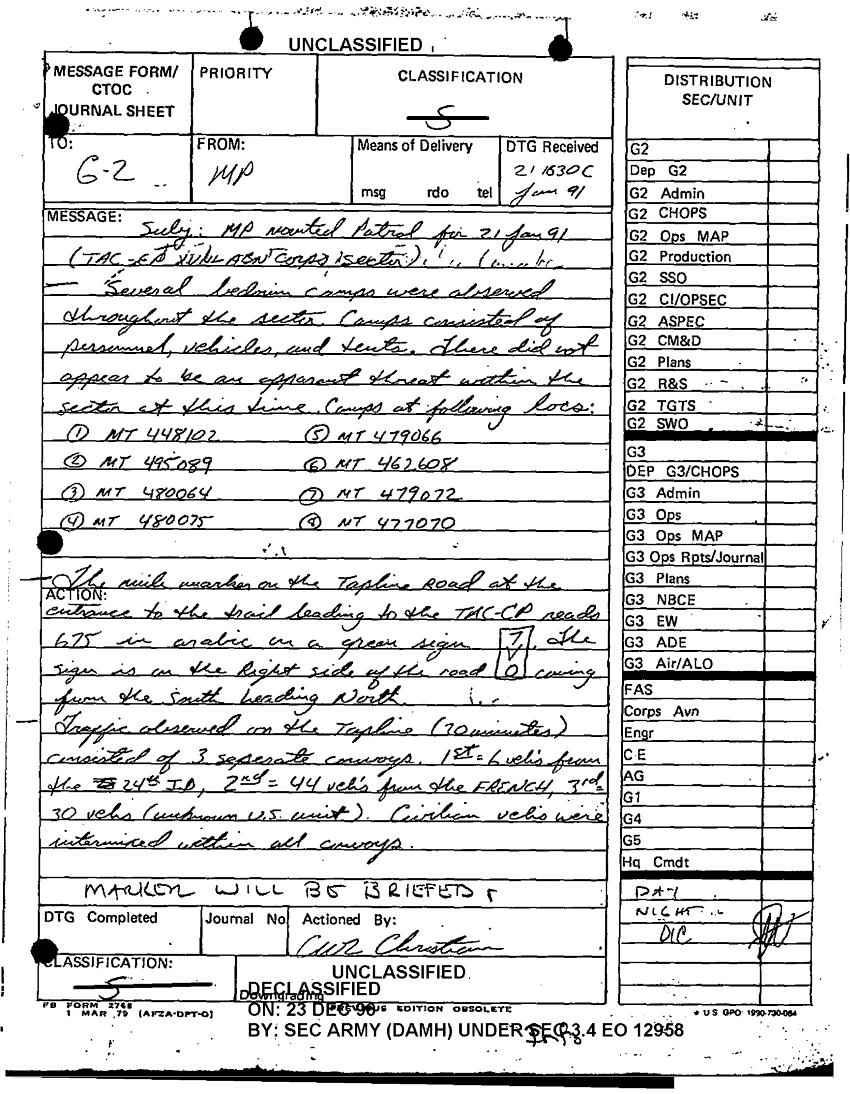 UNCLASSIFIED
MESSAGE FORM/
CTOC
JOURNAL SHEET
PRIORITY
CLASSIFICATION
S
TO:
G-2
FROM:
MP
Means of Delivery
msg rdo tel
DTG Received
211630C
Jan 91
MESSAGE:
Subj: MP mounted Patrol for 21 Jan 91
(TAC-CP XVIII ABN Corps sector)
— Several bedouin camps were observed
throughout the sector. Camps consisted of
personnel, vehicles, and tents. There did not
appear to be an apparent threat within the
sector at this time. Camps at following locs:
① MT 448102 ⑤ MT 479066
② MT 495089 ⑥ MT 462608
③ MT 480064 ⑦ MT 479072
④ MT 480075 ⑧ MT 477070
— The mile marker on the Tapline Road at the
ACTION:
entrance to the trail leading to the TAC-CP reads
675 in arabic on a green sign 7V0. The
sign is on the Right side of the road coming
from the South heading North.
— Traffic observed on the Tapline (20 minutes)
consisted of 3 seperate convoys. 1st = 6 veh's from
the 24th ID, 2nd = 44 veh's from the FRENCH, 3rd =
30 vehs (unknown U.S. unit). Civilian vehs were
intermixed within all convoys.
MARKER WILL BE BRIEFED
DTG Completed
Journal No
Actioned By:
CW2 Christian
CLASSIFICATION:
S
UNCLASSIFIED
DECLASSIFIED
Downgrading
FB FORM 2768
1 MAR 79 (AFZA-DPT-O)
PREVIOUS EDITION OBSOLETE
ON: 23 DEC 96
BY: SEC ARMY (DAMH) UNDER SEC 3.4 EO 12958
DISTRIBUTION
SEC/UNIT
G2
Dep G2
G2 Admin
G2 CHOPS
G2 Ops MAP
G2 Production
G2 SSO
G2 CI/OPSEC
G2 ASPEC
G2 CM&D
G2 Plans
G2 R&S
G2 TGTS
G2 SWO
G3
DEP G3/CHOPS
G3 Admin
G3 Ops
G3 Ops MAP
G3 Ops Rpts/Journal
G3 Plans
G3 NBCE
G3 EW
G3 ADE
G3 Air/ALO
FAS
Corps Avn
Engr
CE
AG
G1
G4
G5
Hq Cmdt
DAY
NIGHT
OIC
* US GPO: 1990-730-084